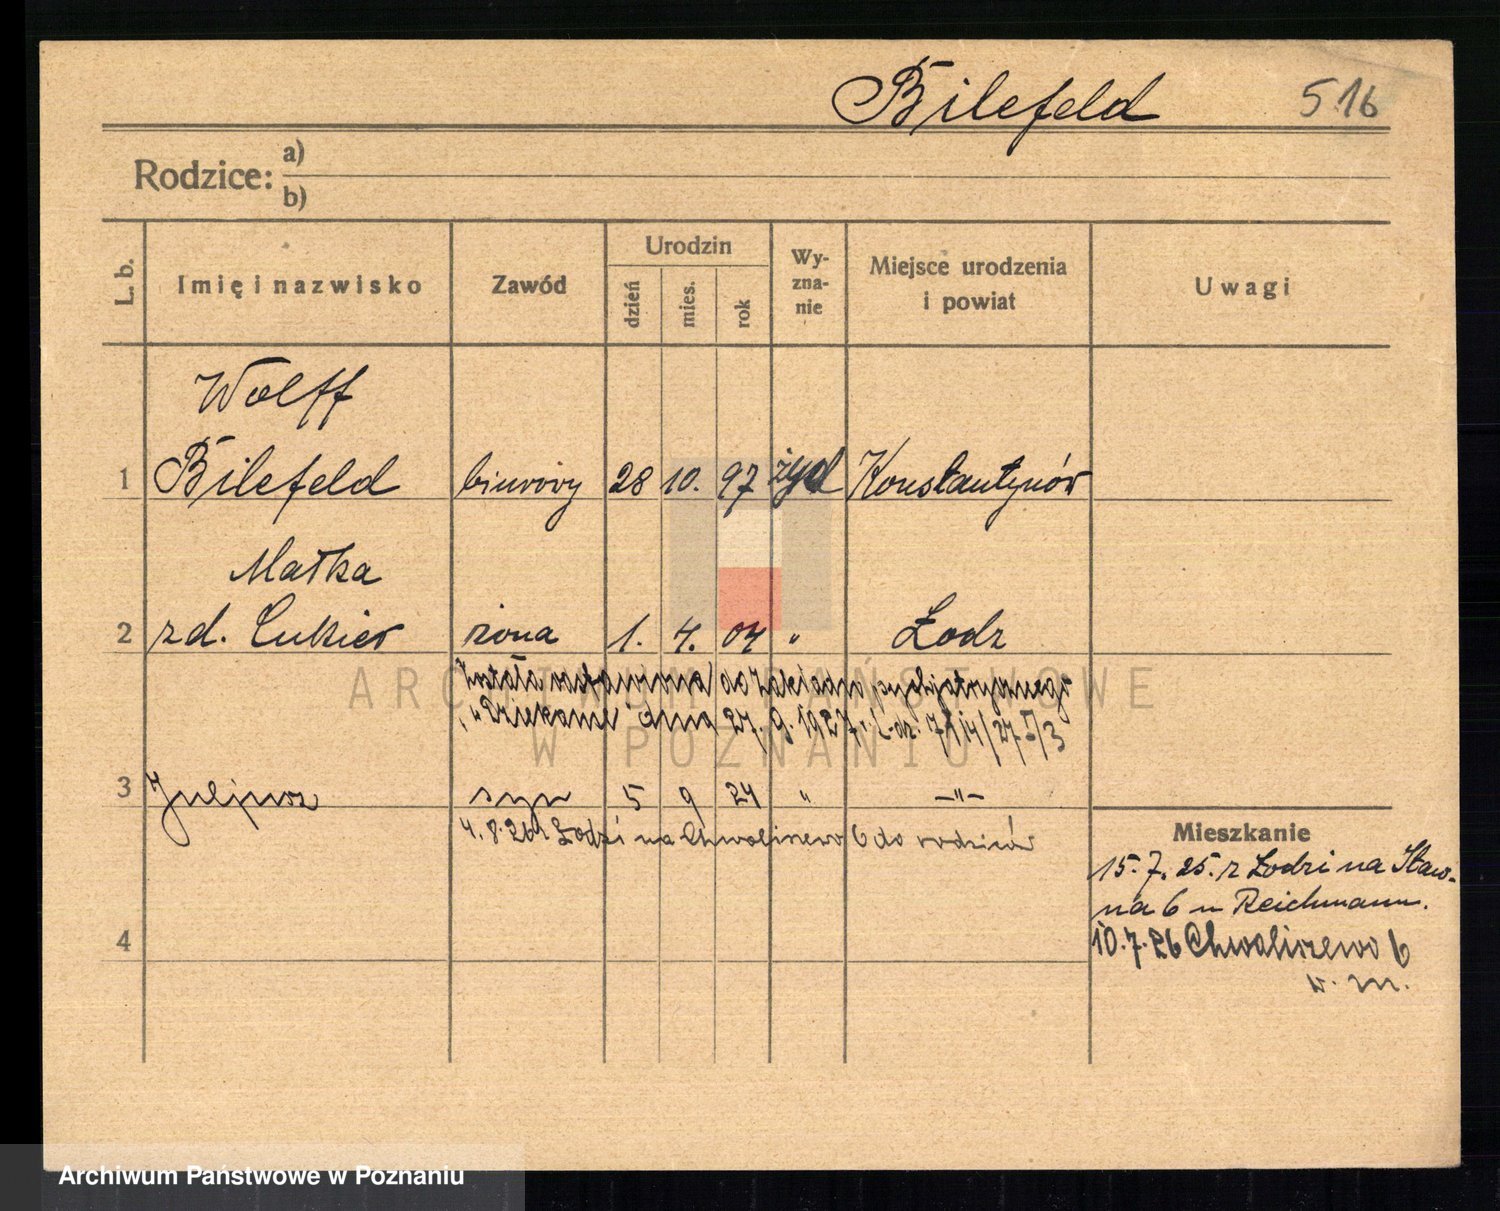 Bilefeld 516
Rodzice: a)
b)
L. b. Imię i nazwisko Zawód Urodzin dzień mies. rok Wy-zna-nie Miejsce urodzenia i powiat Uwagi
Wolff
1 Bilefeld biurowy 28 10. 97 żyd Konstantynów
Małka
2 zd. Cukier żona 1. 4. 04 " Łodz
Została odstawiona do Zakładu psychjatrycznego
"Dziekanka" dnia 27. 9. 1927 r. L. dz. 7114/27
3 Juljusz syn 5 9 24 " -"-
4. 8. 26 z Łodzi na Chwaliszewo 6 do rodziców
Mieszkanie
15. 7. 25. z Łodzi na Staw-
na 6 u Reichmann.
4 10. 7. 26 Chwaliszewo 6
w. m.
ARCHIWUM PAŃSTWOWE
W POZNANIU
Archiwum Państwowe w Poznaniu